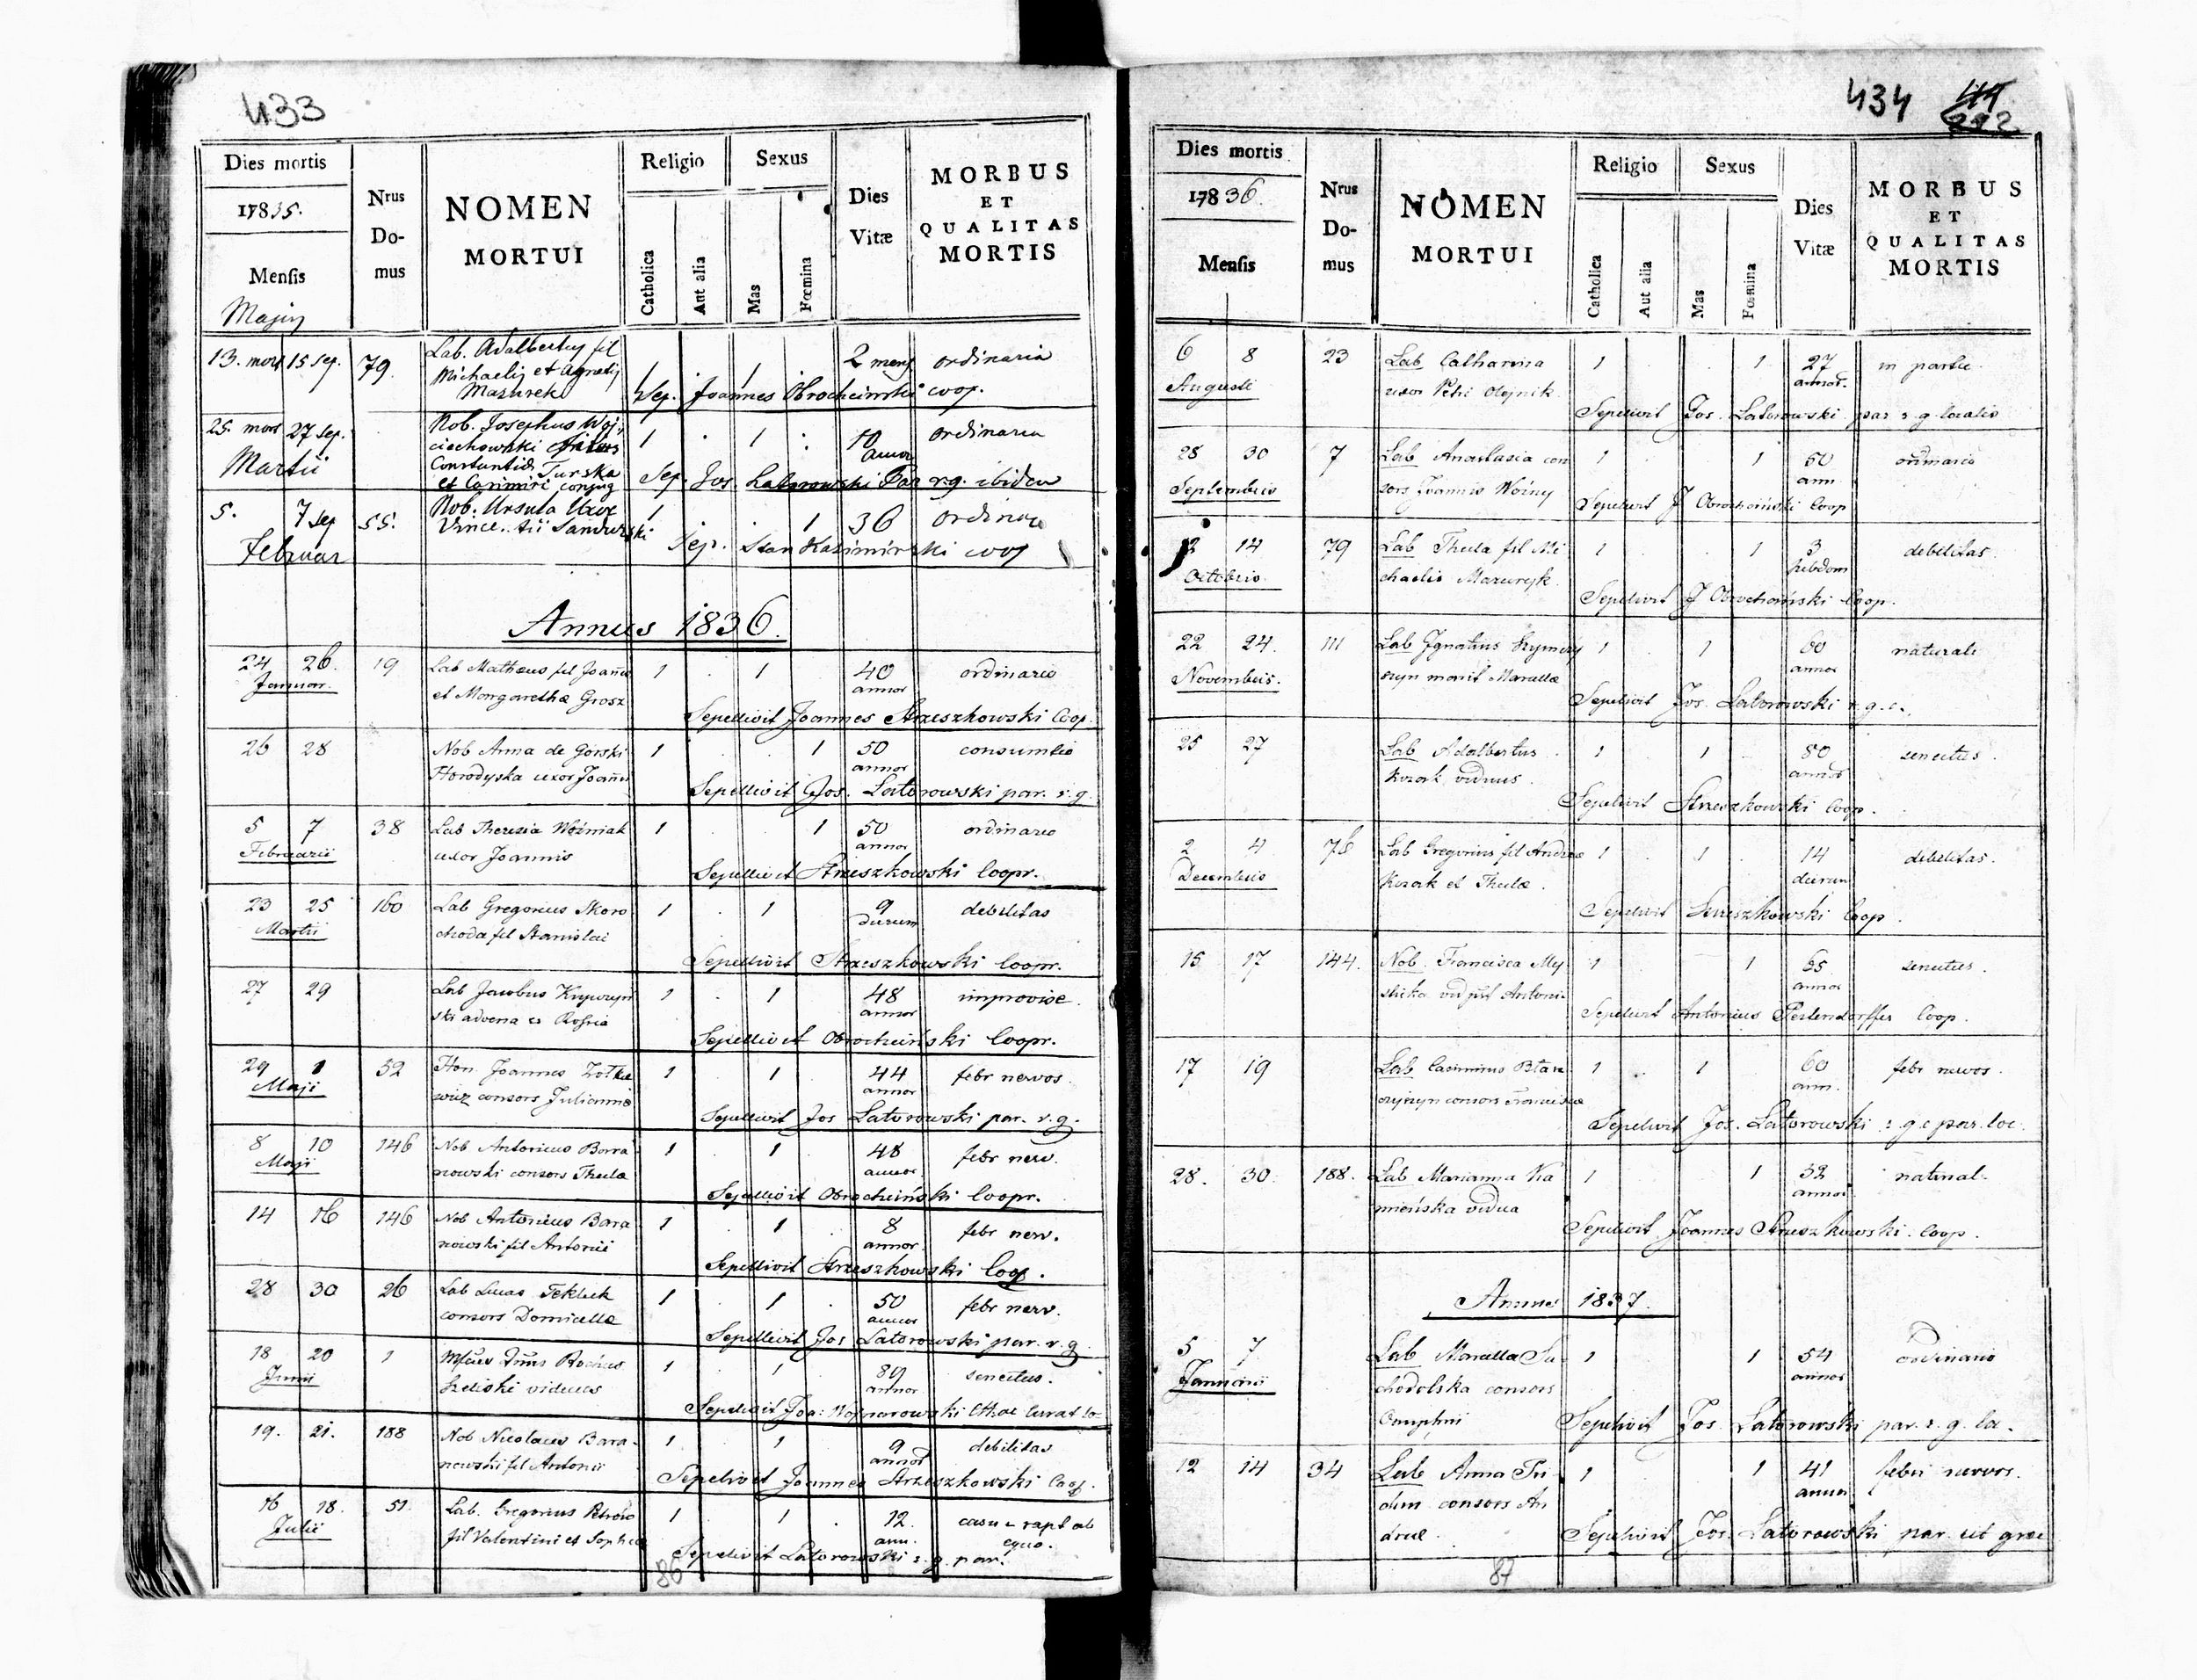 433
Dies mortis
17835.
Mensis
Majij
Nrus
Do-
mus
NOMEN
MORTUI
Religio
Catholica
Aut alia
Sexus
Mas
Fœmina
Dies
Vitæ
MORBUS
ET
QUALITAS
MORTIS
13. mort 15 sep. 79. Lab. Adalbertus fil 1 . 1 . 2 mens ordinaria
Michaelis et Agnetis
Mazurek Sep. Joannes Obrocheinski coop.
25. mort 27 sep. Nob. Josephus Woj- 1 . 1 . 10 ordinaria
Martii ciechowski annor
Constantia Turska
et Casimiri conjug Sep. Jos. Latorowski Par r.g. ibidem
5. 7 sep 55. Nob. Ursula Uxor 1 . . 1 36 ordinar
Februar Sep. Stan Kazimirski coop
Annus 1836.
24 26. 19 Lab Matheus fil Joannis 1 . 1 40 ordinaria
Januar. et Margarethæ Grosz annor
Sepellivit Joannes Strzeszkowski Coop.
26 28 Nob Anna de Gorski 1 . . 1 50 consumtio
Horodyska uxor Joannis annor
Sepellivit Jos. Latorowski par. r. g.
5 7 38 Lab Theresia Woźniak 1 . . 1 50 ordinaria
Februarii uxor Joannis annor
Sepellivit Strzeszkowski Coopr.
23 25 160 Lab Gregorius Skoro 1 . 1 9 debilitas
Martii choda fil Stanislai dierum
Sepellivit Strzeszkowski Coopr.
27 29 Lab Jacobus 1 . 1 48 improvise.
ski advena ex Rossia annor
Sepellivit Obrocheiński Coopr.
29 1 52 Hon. Joannes Zołkie 1 . 1 44 febr nervos.
Maji wicz consors Julianna annor
Sepellivit Jos Latorowski par. r. g.
8 10 146 Nob Antonius Bara 1 . 1 48 febr nerv.
Maji nowski consors Thecla annor
Sepellivit Obrocheiński Coopr.
14 16 146 Nob Antonius Bara 1 . 1 . 8 febr nerv.
nowski fil Antonii annor.
Sepellivit Strzeszkowski Coop.
28 30 26 Lab Lucas Tekluk 1 . 1 . 50 febr nerv.
consors Domicella annor
Sepellivit Jos Latorowski par. r. g.
18 20 1 1 . 1 . 80 senectus.
Junii Szeliski viduus annor
Sepelivit Joa:
19. 21. 188 Nob Nicolaus Bara- 1 . 1 9 debilitas
nowski fil Antonii annor
Sepelivit Joannes Strzeszkowski Coop.
16 18. 51. Lab. Gregorius 1 . 1 . 12. casu rapt ab
Julii fil Valentini et Sophiæ ann. equo.
Sepelivit Latorowski r. g. par.
86
434
Dies mortis
17836.
Mensis
Nrus
Do-
mus
NOMEN
MORTUI
Religio
Catholica
Aut alia
Sexus
Mas
Fœmina
Dies
Vitæ
MORBUS
ET
QUALITAS
MORTIS
6 8 23 Lab Catharina 1 . . 1 27 in partu.
Augusti uxor Petri Olejnik annor.
Sepelivit Jos. Latorowski par r. g. localis
28 30 7 Lab Anastasia con 1 . 1 50 ordinaria
Septembris sors Joannis Woźny ann
Sepelivit J Obrocheiński Coop
12 14 79 Lab Thecla fil Mi 1 . 1 3 debilitas.
Octobris chaelis Mazuryk. hebdom
Sepelivit J Obrocheiński Coop.
22 24. 111 Lab Ignatius Szymczy 1 . 1 60 naturali
Novembris. szyn marit Marcella annor
Sepelivit Jos. Latorowski r. g. c.
25 27 Lab Adalbertus 1 . 1 80 senectus.
Kozak viduus. annor
Sepelivit Strzeszkowski Coop.
2 4 76 Lab Gregorius fil Andreæ 1 . 1 . 14 debilitas.
Decembris Kozak et Theclæ. dierum
Sepelivit Strzeszkowski Coop.
15 17 144. Nob. Francisca My- 1 . 1 65 senectus.
annor
Sepelivit Antonius Perlendorffer Coop.
17 19 Lab Casimirus 1 . 1 60 febr nervos.
consors Franciscæ ann.
Sepelivit Jos. Latorowski r. g. c par. loc.
28. 30. 188. Lab Marianna Ka 1 . 1 32 natural.
mieńska vidua annor
Sepelivit Joannes Strzeszkowski. Coop.
Annus 1837.
5 7 Lab Marcella Su- 1 . 1 54 ordinaria
Januarii chodolska consors annor
Onuphrii Sepelivit Jos. Latorowski par. r. g. lo.
12 14 34 Lab Anna 1 1 41 febri nervos.
consors An annor
dreæ. Sepelivit Jos. Latorowski par. rit græc
87